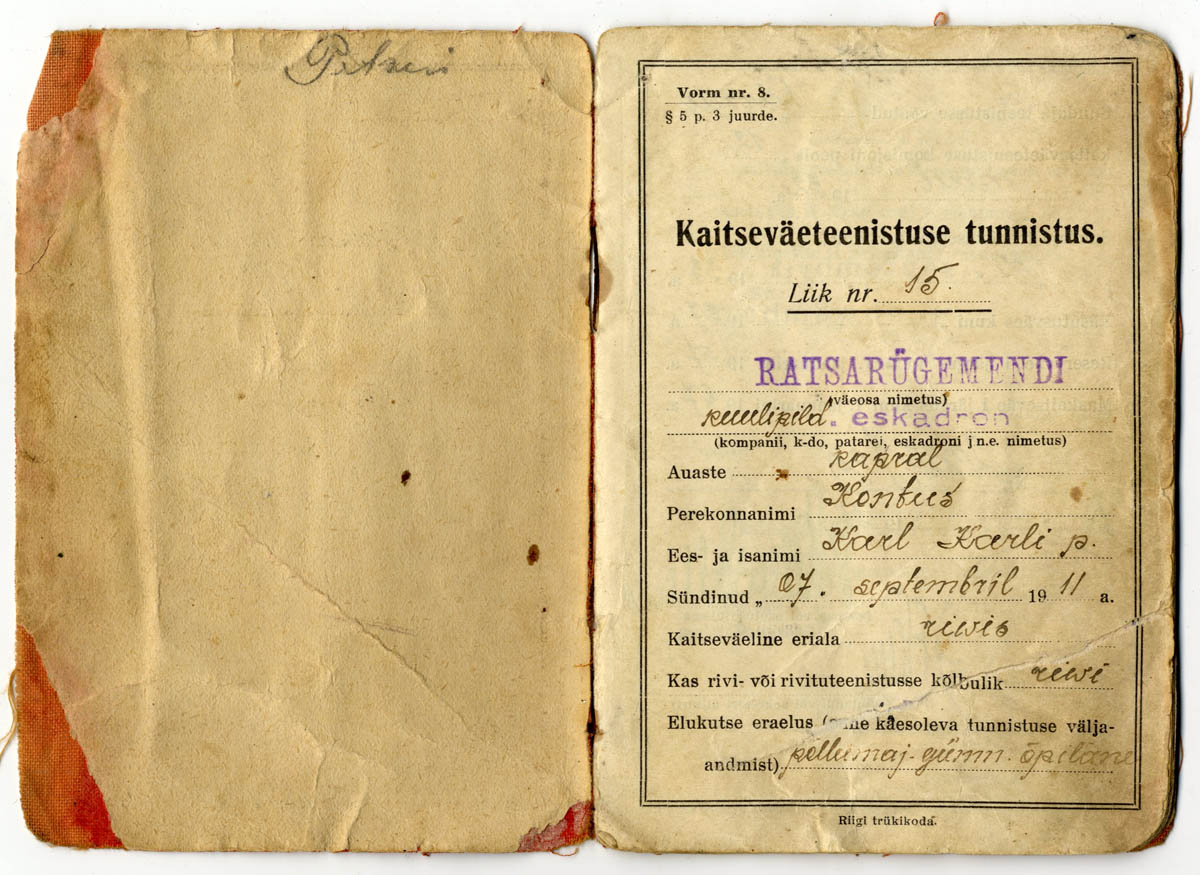 Vorm nr. 8.
§ 5 p. 3 juurde.
Kaitseväeteenistuse tunnistus.
Liik nr. 15.
RATSARÜGEMENDI
(väeosa nimetus)
kuulipild. eskadron
(kompanii, k-do, patarei, eskadroni j n.e. nimetus)
Auaste kapral
Perekonnanimi Kontus
Ees- ja isanimi Karl Karli p.
Sündinud „ 07. septembril 1911 a.
Kaitseväeline eriala riwis
Kas rivi- või rivituteenistusse kõlbulik riwi
Elukutse eraelus käesoleva tunnistuse välja-
andmist) põllumaj. gümn. õpilane
Riigi trükikoda.